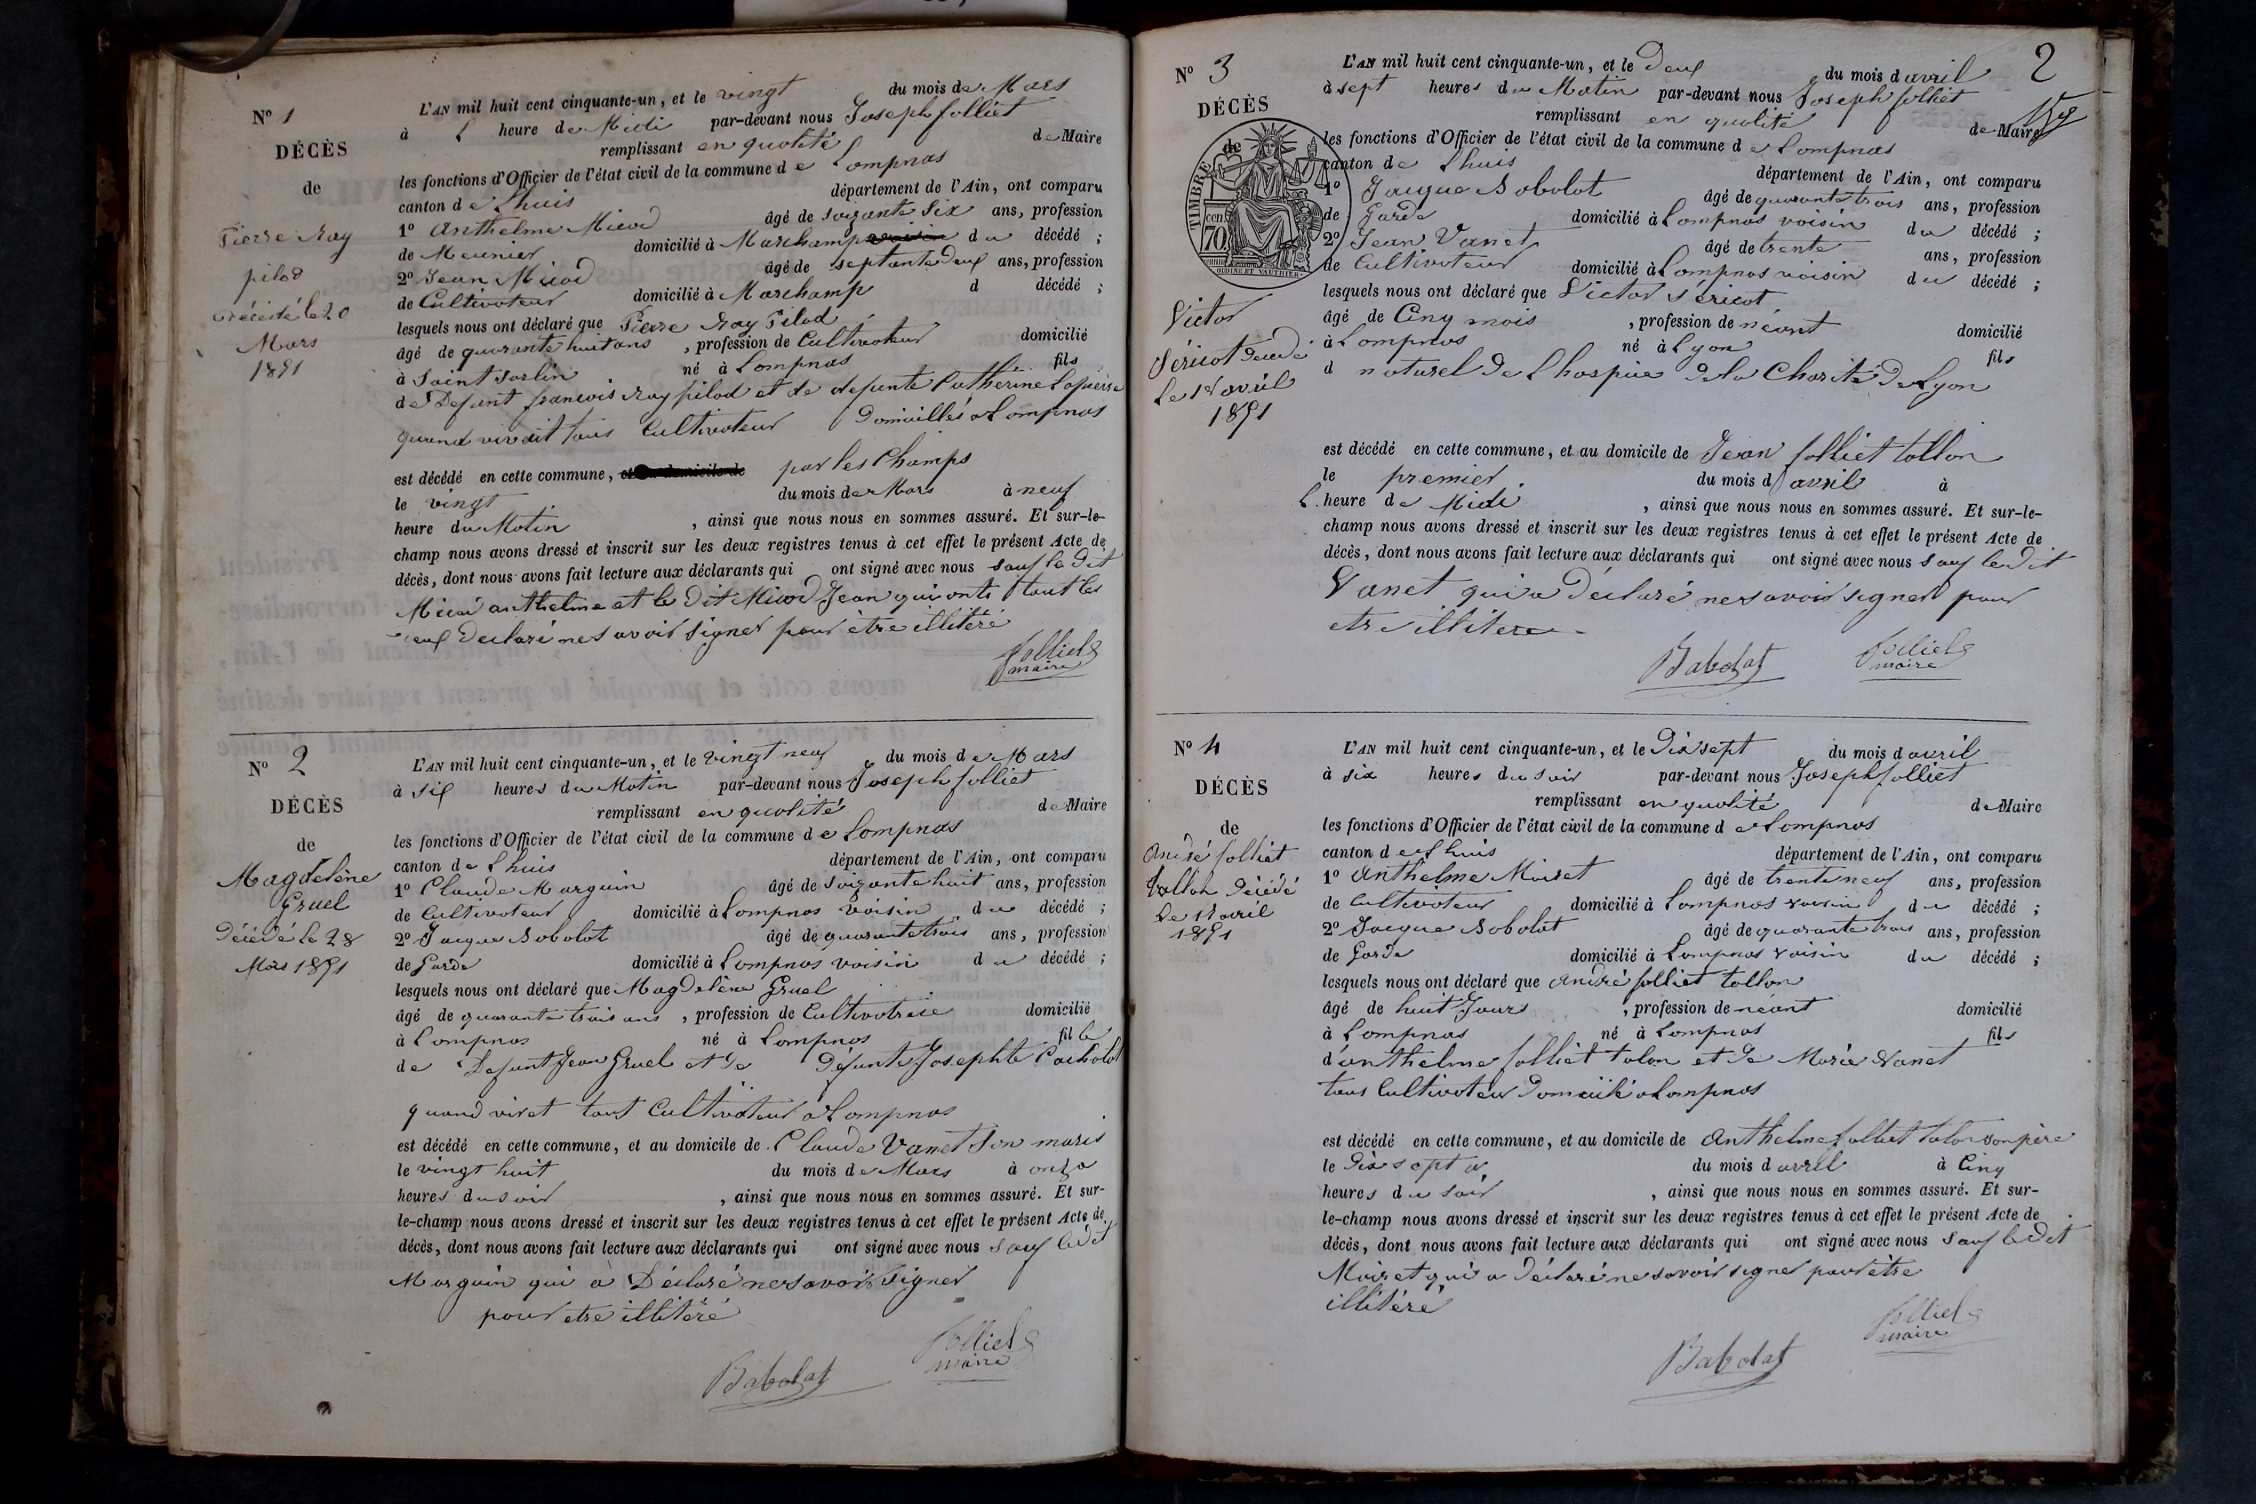 N° 1
DÉCÈS
de
Pierre Ray
pilod
décédé le 20
Mars
1851
L'AN mil huit cent cinquante-un, et le vingt du mois de Mars
à l heure de Midi par-devant nous Joseph folliet
remplissant en qualité de Maire
les fonctions d'Officier de l'état civil de la commune de Lompnas
canton de Lhuis département de l'Ain, ont comparu
1° Anthelme Micod âgé de soixante Six ans, profession
de Meunier domicilié à Marchamp voisin du décédé ;
2° Jean Micod âgé de septante Deux ans, profession
de Cultivateur domicilié à Marchamp d décédé ;
lesquels nous ont déclaré que Pierre Ray Pilod
âgé de quarante huit ans , profession de Cultivateur domicilié
à Saint Sorlin né à Lompnas fils
de Defunt francois Ray pilod et de defunte Catherine
quand vivait tous Cultivateur Domicillés a Lompnas
est décédé en cette commune, et au domicile de par les Champs
le vingt du mois de Mars à neuf
heure du Matin , ainsi que nous nous en sommes assuré. Et sur-le-
champ nous avons dressé et inscrit sur les deux registres tenus à cet effet le présent Acte de
décès, dont nous avons fait lecture aux déclarants qui ont signé avec nous sauf le Dit
Micod anthelme et le Dit Micod Jean qui onts tout les
deux Declaré ne Savoir Signer pour être illitéré
folliet
maire
N° 2
DÉCÈS
de
Magdelène
Gruel
Décédé le 28
Mars 1851
L'AN mil huit cent cinquante-un, et le vingt neuf du mois de Mars
à six heures du Matin par-devant nous Joseph folliet
remplissant en qualité de Maire
les fonctions d'Officier de l'état civil de la commune de Lompnas
canton de Lhuis département de l'Ain, ont comparu
1° Claude Marguin âgé de soixante huit ans, profession
de Cultivateur domicilié à Lompnas voisin du décédé ;
2° Jacque Babolat âgé de quarante trois ans, profession
de Garde domicilié à Lompnas voisin du décédé ;
lesquels nous ont déclaré que Magdelène Gruel
âgé de quarante trois ans , profession de Cultivatrice domicilié
à Lompnas né à Lompnas fille
de Defunt Jean Gruel et de Défunte Josephte
quand vivat tout Cultivateur a Lompnas
est décédé en cette commune, et au domicile de Claude Vanet Son maris
le vingt huit du mois de Mars à onze
heures du soir , ainsi que nous nous en sommes assuré. Et sur-
le-champ nous avons dressé et inscrit sur les deux registres tenus à cet effet le présent Acte de
décès, dont nous avons fait lecture aux déclarants qui ont signé avec nous sauf le Dit
Marguin qui à Déclaré ne Savoir Signer
pour etre illitéré
Babolat
folliet
maire
2
N° 3
DÉCÈS
de
TIMBRE
70 cen
OUDINE ET VAUTHIER
Victor
Séricot Décédé
Le 1er avril
1851
L'AN mil huit cent cinquante-un, et le Deux du mois d avril
à sept heures du Matin par-devant nous Joseph folliet
remplissant en qualité de Maire
les fonctions d'Officier de l'état civil de la commune de Lompnas
canton de Lhuis département de l'Ain, ont comparu
1° Jacque Babolat âgé de quarante trois ans, profession
de Garde domicilié à Lompnas voisin du décédé ;
2° Jean Vanet âgé de trente ans, profession
de Cultivateur domicilié à Lompnas voisin du décédé ;
lesquels nous ont déclaré que Victor Séricot
âgé de Cinq mois , profession de néant domicilié
à Lompnas né à Lyon fils
d naturel de Lhospice de la Charité de Lyon
est décédé en cette commune, et au domicile de Jean folliet tollon
le premier du mois d avril à
l heure de Midi , ainsi que nous nous en sommes assuré. Et sur-le-
champ nous avons dressé et inscrit sur les deux registres tenus à cet effet le présent Acte de
décès, dont nous avons fait lecture aux déclarants qui ont signé avec nous sauf le Dit
Vanet qui a Déclaré ne savoir signer pour
etre illitere
Babolat
folliet
maire
N° 4
DÉCÈS
de
André folliet
tollon Décédé
Le 17 avril
1851
L'AN mil huit cent cinquante-un, et le Dix sept du mois d avril
à six heures du soir par-devant nous Joseph folliet
remplissant en qualité de Maire
les fonctions d'Officier de l'état civil de la commune de Lompnas
canton de Lhuis département de l'Ain, ont comparu
1° Anthelme Moiret âgé de trente neuf ans, profession
de Cultivateur domicilié à Lompnas voisin du décédé ;
2° Jacque Babolat âgé de quarante trois ans, profession
de Garde domicilié à Lompnas voisin du décédé ;
lesquels nous ont déclaré que André folliet tollon
âgé de huit Jours , profession de néant domicilié
à Lompnas né à Lompnas fils
d'anthelme folliet tolon et de Marie Vanet
tous Cultivateur Domicilié a Lompnas
est décédé en cette commune, et au domicile de Anthelme folliet tolon son père
le Dix sept du mois d avril à Cinq
heures du soir , ainsi que nous nous en sommes assuré. Et sur-
le-champ nous avons dressé et inscrit sur les deux registres tenus à cet effet le présent Acte de
décès, dont nous avons fait lecture aux déclarants qui ont signé avec nous sauf le Dit
Moiret qui a Déclaré ne savoir signer pour etre
illitéré
Babolat
folliet
maire